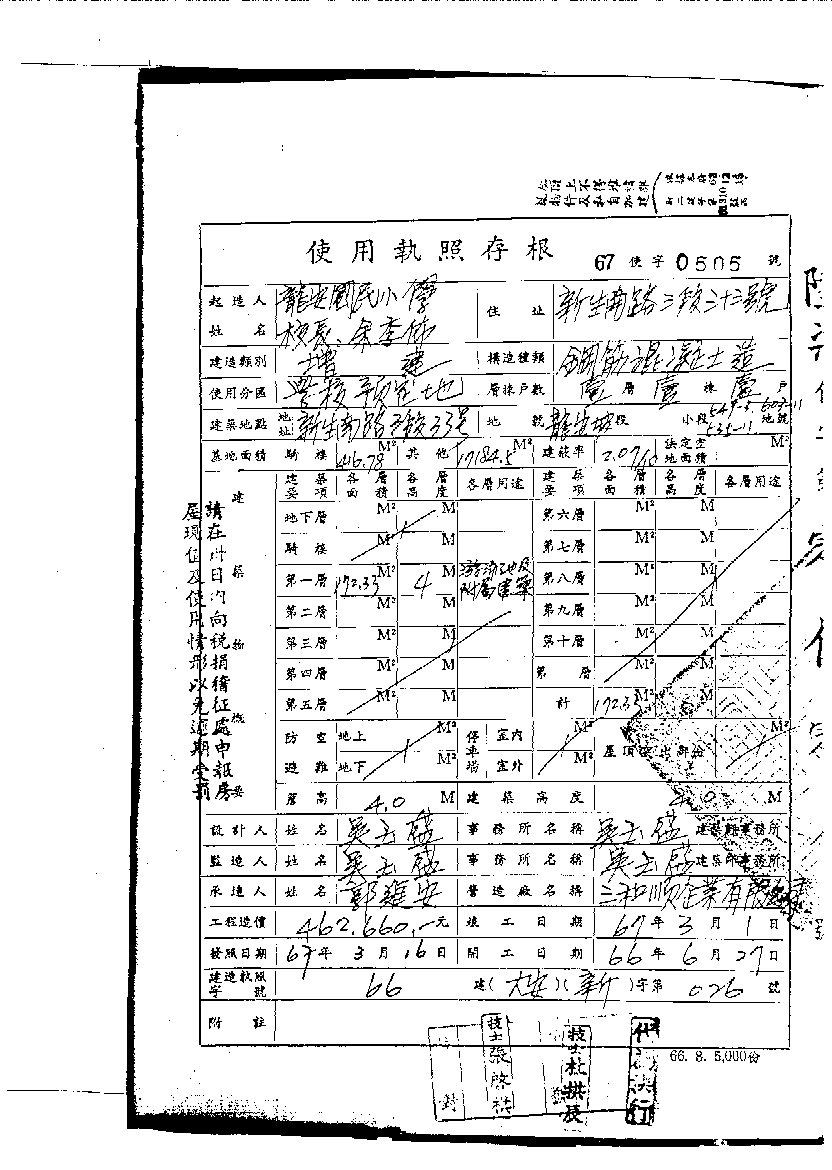 使用執照存根 67 使字 0505 號
起造人姓名 龍安國民小學 校長:余季 住址 新生南路三段三十三號
建造類別 增建 構造種類 鋼筋混凝土造
使用分區 學校預定地 層棟戶數 壹層壹棟壹戶
建築地點 地址 新生南路三段33號 地號 龍安坡段 小段 地號
基地面積 騎樓 416.78 M² 其他 17184.5 M² 建蔽率 2.07% 法定空地面積 M²
建築物概要
建築要項 各層面積 各層高度 各層用途 建築要項 各層面積 各層高度 各層用途
地下層 M² M 第六層 M² M
騎樓 M² M 第七層 M² M
第一層 172.33 M² 4 M 游泳池及附屬建築 第八層 M² M
第二層 M² M 第九層 M² M
第三層 M² M 第十層 M² M
第四層 M² M 第 層 M² M
第五層 M² M 計 172.33 M² M
防空避難 地上 M² 停車場 室內 M²
地下 M² 室外 M²
簷高 4.0 M 建築高度 4.0 M
設計人 姓名 吳玉盛 事務所名稱 吳玉盛 建築師事務所
監造人 姓名 吳玉盛 事務所名稱 吳玉盛 建築師事務所
承造人 姓名 郭進安 營造廠名稱 三和順企業有限公司
工程造價 462,660.- 元 竣工日期 67 年 3 月 1 日
發照日期 67 年 3 月 16 日 開工日期 66 年 6 月 27 日
建造執照字號 66 建(大安)(新)字第 026 號
附註
66. 8. 5,000份
請在卅日內向稅捐稽征處申報房
屋現值及使用情形以免逾期受罰